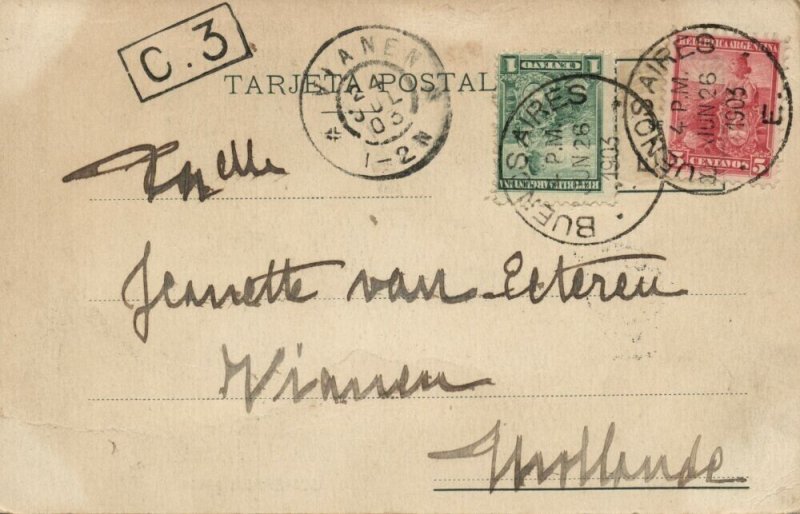 C.3
VIANEN
24 JUL 03
1-2N
TARJETA POSTAL
1 CENTAVO 1
REPUBLICA ARGENTINA
BUENOS AIRES
4 P.M.
JUN 26
1903
REPUBLICA ARGENTINA
5 CENTAVOS 5
BUENOS AIRES
4 P.M.
JUN 26
1903
E.
Mlle
Jeanette van Eeteren
Vianen
Hollande